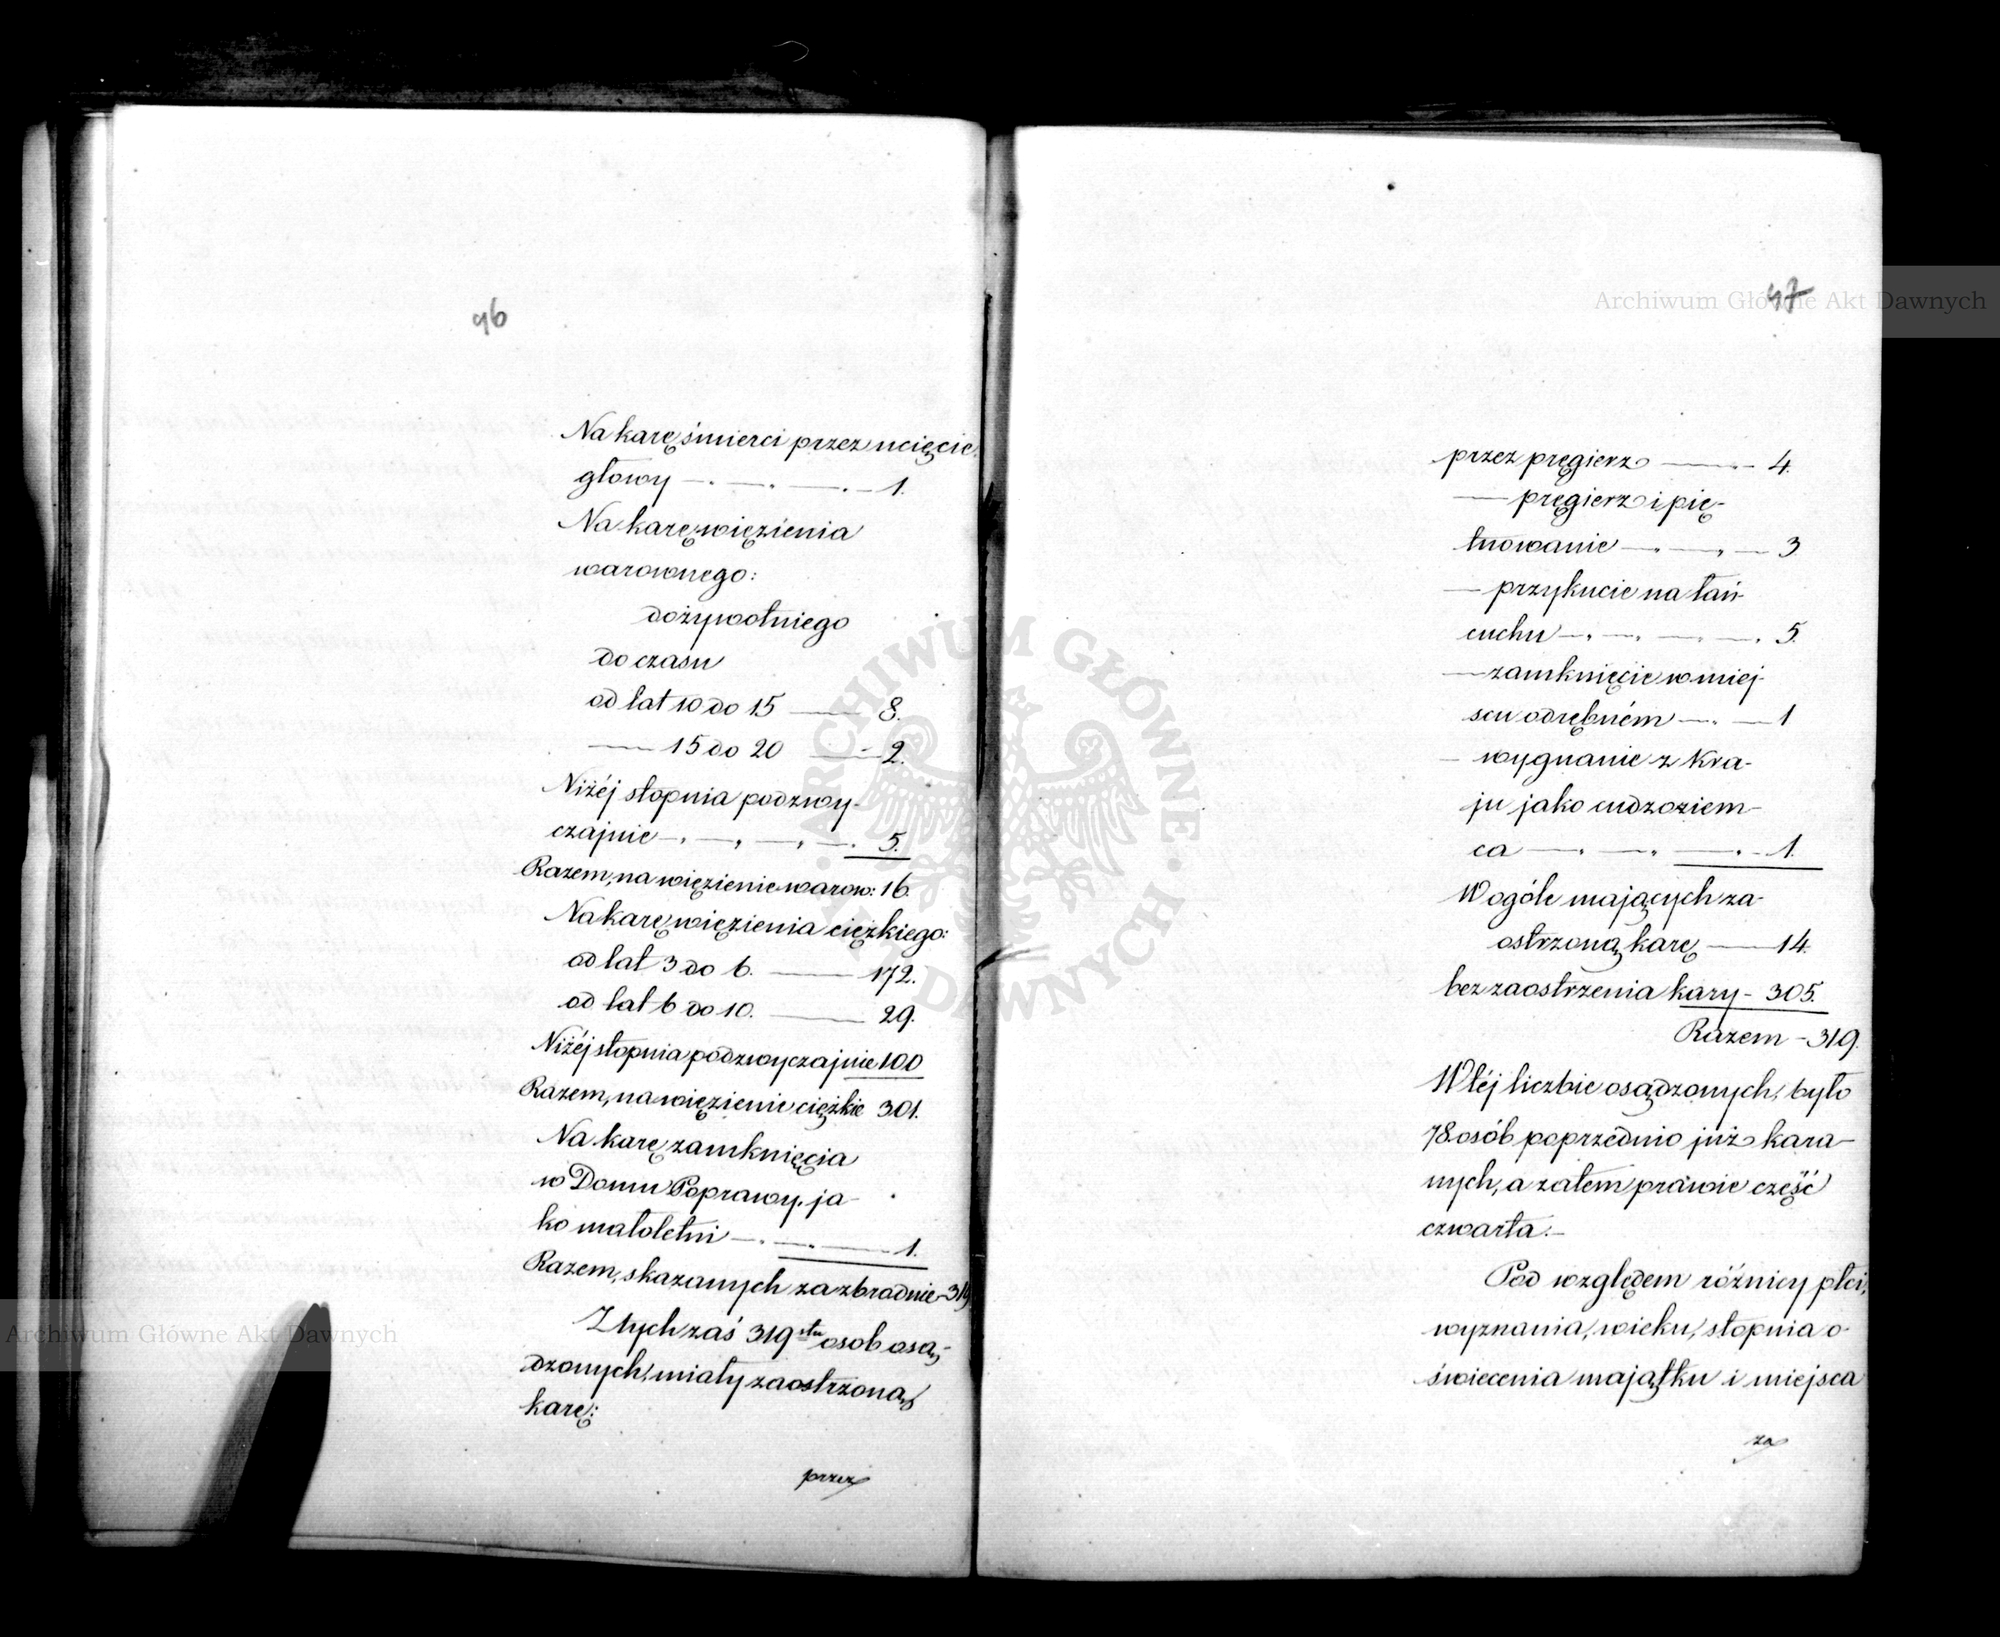 96
Na karę śmierci przez ucięcie
głowy — „ — „ — „ — 1.
Na karę więzienia
warownego:
dożywotniego
do czasu
od lat 10 do 15 —— 8.
—— 15 do 20 —— 2.
Niżéj stopnia podzwy-
czajnie — „ — „ — „ — „ 5.
Razem, na więzienie warow: 16.
Na karę więzienia ciężkiego:
od lat 3 do 6. —— 172.
od lat 6 do 10. —— 29.
Niżéj stopnia podzwyczajnie 100
Razem, na więzienie ciężkie 301.
Na karę zamknięcia
w Domu Poprawy, ja-
ko małoletni — „ — „ —— 1.
Razem, skazanych za zbrodnie — 319
Z tych zaś 319stu osob osą-
dzonych, miały zaostrzoną
karę:
przez
47
przez pręgierz —— „ — 4.
—— pręgierz i pię-
tnowanie — „ — „ — 3
— przykucie na łań-
cuchu — „ — „ — „ — „ 5.
— zamknięcie w miej-
scu odrębném — „ — 1
— wygnanie z Kra-
ju jako cudzoziem-
ca — „ — „ — „ — 1.
W ogóle mających za-
ostrzoną karę —— 14.
bez zaostrzenia kary — 305.
Razem — 319.
W téj liczbie osądzonych, było
78. osób poprzednio już kara-
nych, a zatem prawie część
czwarta. —
Pod względem różnicy płci,
wyznania, wieku, stopnia o-
świecenia majątku i miejsca
za
Archiwum Główne Akt Dawnych
Archiwum Główne Akt Dawnych
ARCHIWUM GŁÓWNE AKT DAWNYCH